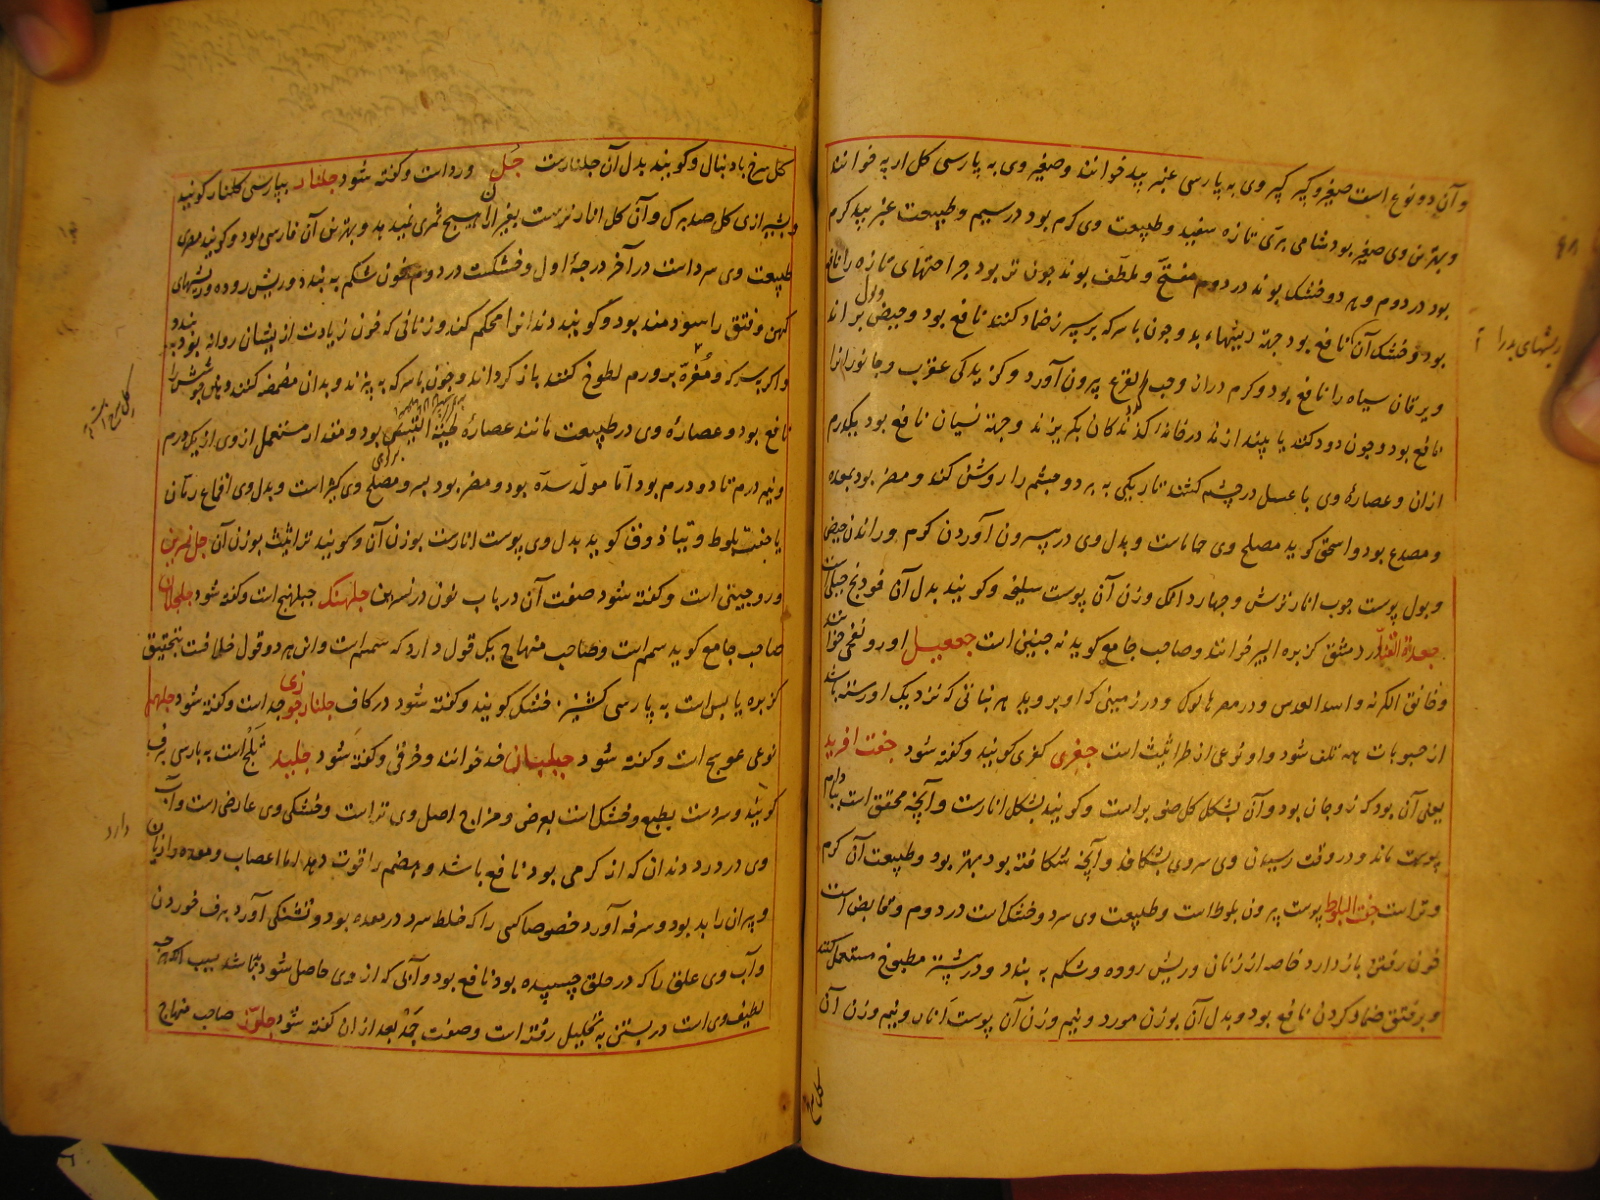 و آن دو نوع است صغیر و کبیر کبیر وی به پارسی عنبر بید خوانند و صغیر وی به پارسی کل اربه خوانند
و بهترین وی صغیر بود شامی بری تازه سفید و طبیعت وی کرم بود در سیم و طبیعت عنبر بید کرم
بود در دوم و هر دو خشک بوند در دوم مفتح و ملطف بوند چون تر بود جراحتهای تازه را نافع
بود و خشک آن نافع بود جهة ریشهاء بد و چون با سرکه بر سپرز ضماد کنند نافع بود و حیض و بول براند
ریشهای بد را
و یرقان سیاه را نافع بود و کرم دراز و حب القرع بیرون آورد و کزیدکی عقرب و جانوران را
نافع بود و چون دود کنند یا بیندازند در خانه کزندکان بکریزند و جهة نسیان نافع بود یکدرم
از ان و عصارهٔ وی با عسل در چشم کشند تاریکی به برد و چشم را روشن کند و مضر بود بمعده
و مصدع بود و اسحق کوید مصلح وی حماماست و بدل وی در بیرون آوردن کرم و راندن حیض
و بول پوست چوب انار ترش و چهار دانک وزن آن پوست سلیخه و کویند بدل آن فودنج جبلی است
جعدة القنا در دمشق کزبره البیر خوانند و صاحب جامع کوید نه چنین است جعفیل اورونغمی خوانند
و خانق الکرسنه و اسد العدس و در مصر هالوک و در زمینی که او بروید هر نباتی که نزدیک او رسته باشد
از حبوبات همه تلف شود و او نوعی از طراثیث است جفری کفری کویند و کفته شود جفت افرید
یعنی آن بود که زوجان بود و آن بشکل کل صنوبر است و کویند بشکل انارست و آنچه محقق است بادام
پوست ماند و در وقت رسیدن وی سر وی بشکافد و آنچه شکافته بود بهتر بود و طبیعت آن کرم
و تر است جفت البلوط پوست بیرون بلوط است و طبیعت وی سرد و خشک است در دوم و قابض است
خون رفتن باز دارد خاصه از زنان و ریش روده و شکم به بندد و در بیشتر مطبوخ مستعمل کنند
و بر فتق ضماد کردن نافع بود و بدل آن بوزن مورد و نیم وزن آن پوست انار و نیم وزن آن
کل سرخ
کل سرخ باد نبال و کویند بدل آن جلنارست جل ورد است و کفته شود جلنار بپارسی کلنار کویند
و بشیرازی کل صد برک و آن کل انار نرست بغیر از آن هیچ ثمری نمیدهد و بهترین آن فارسی بود و کویند مصری
طبیعت وی سرد است در آخر درجهٔ اول و خشکست در دوم خون شکم به بندد و ریش روده و ریشهای
کهن و فتق را سودمند بود و کویند دندان را محکم کند و زنانی که خون زیادت از یشان روانه بود به بندد
و اکر بسرکه و مغره بر ورم لطوخ کنند باز کرداند و چون با سرکه به پزند و بدان مضمضه کنند
نافع بود و عصارهٔ وی در طبیعت مانند عصارهٔ لحیة التیس بود و مقدار مستعمل از وی از یکدرم
و نیم درم تا دو درم بود اما مولد سده بود و مضر بود بسر و مصلح وی کثیراست و بدل وی اقماع رمان
یا جفت بلوط و تیاذوق کوید بدل وی پوست انارست بوزن آن و کویند طراثیث بوزن آن جل نسرین
ورد چینی است و کفته شود صفت آن در باب نون در نسرین جلهنک جبلهنج است و کفته شود جلجلان
صاحب جامع کوید سمسم است و صاحب منهاج یک قول دارد که سمسم است و این هر دو قول خلافت بتحقیق
کزبره یابس است به پارسی کشنیز خشک کویند و کفته شود در کاف جلنار خوزی جداست و کفته شود جلهم
نوعی عوسج است و کفته شود جبلبان قد خوانند و خرقی و کفته شود جلید ثلج است به پارسی برف
کویند و سردست بطبع و خشک است بعرض و مزاج اصل وی تر است و خشکی وی عارضی است و آب
وی در درد دندان که از کرمی بود نافع باشد و هضم را قوت دهد اما اعصاب و معده را زیان دارد
و پیران را بد بود و سرفه آورد خصوصا کسی را که خلط سرد در معده بود و تشنکی آورد برف خوردن
و آب وی علق را که در حلق چسپیده بود نافع بود و آبی که از وی حاصل شود
لطیف وی است در بستن به تحلیل رفته است و صفت جمد بعد از ان کفته شود جلوز صاحب منهاج